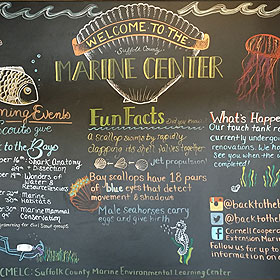 WELCOME TO THE
Suffolk County
MARINE CENTER
ming Events
scouts give
k to the Bays
Shark Anatomy
& Dissection
Wonders of
Water &
Resources
Marine Mammal
Conservation
Fun Facts
Did you know?
a scallop swims by rapidly
clapping its shell valves together
yet propulsion!
Bay scallops have 18 pairs
of blue eyes that detect
movement & shadows
Male Seahorses carry
eggs and give birth
What's Happe
Our touch tank
currently undergo
renovations. We ho
See you when the
completed!
@backtothe
@backtothe
Cornell Cooper
Extension Mari
Follow us for up to
information on
CMELC: Suffolk County Marine Environmental Learning Center